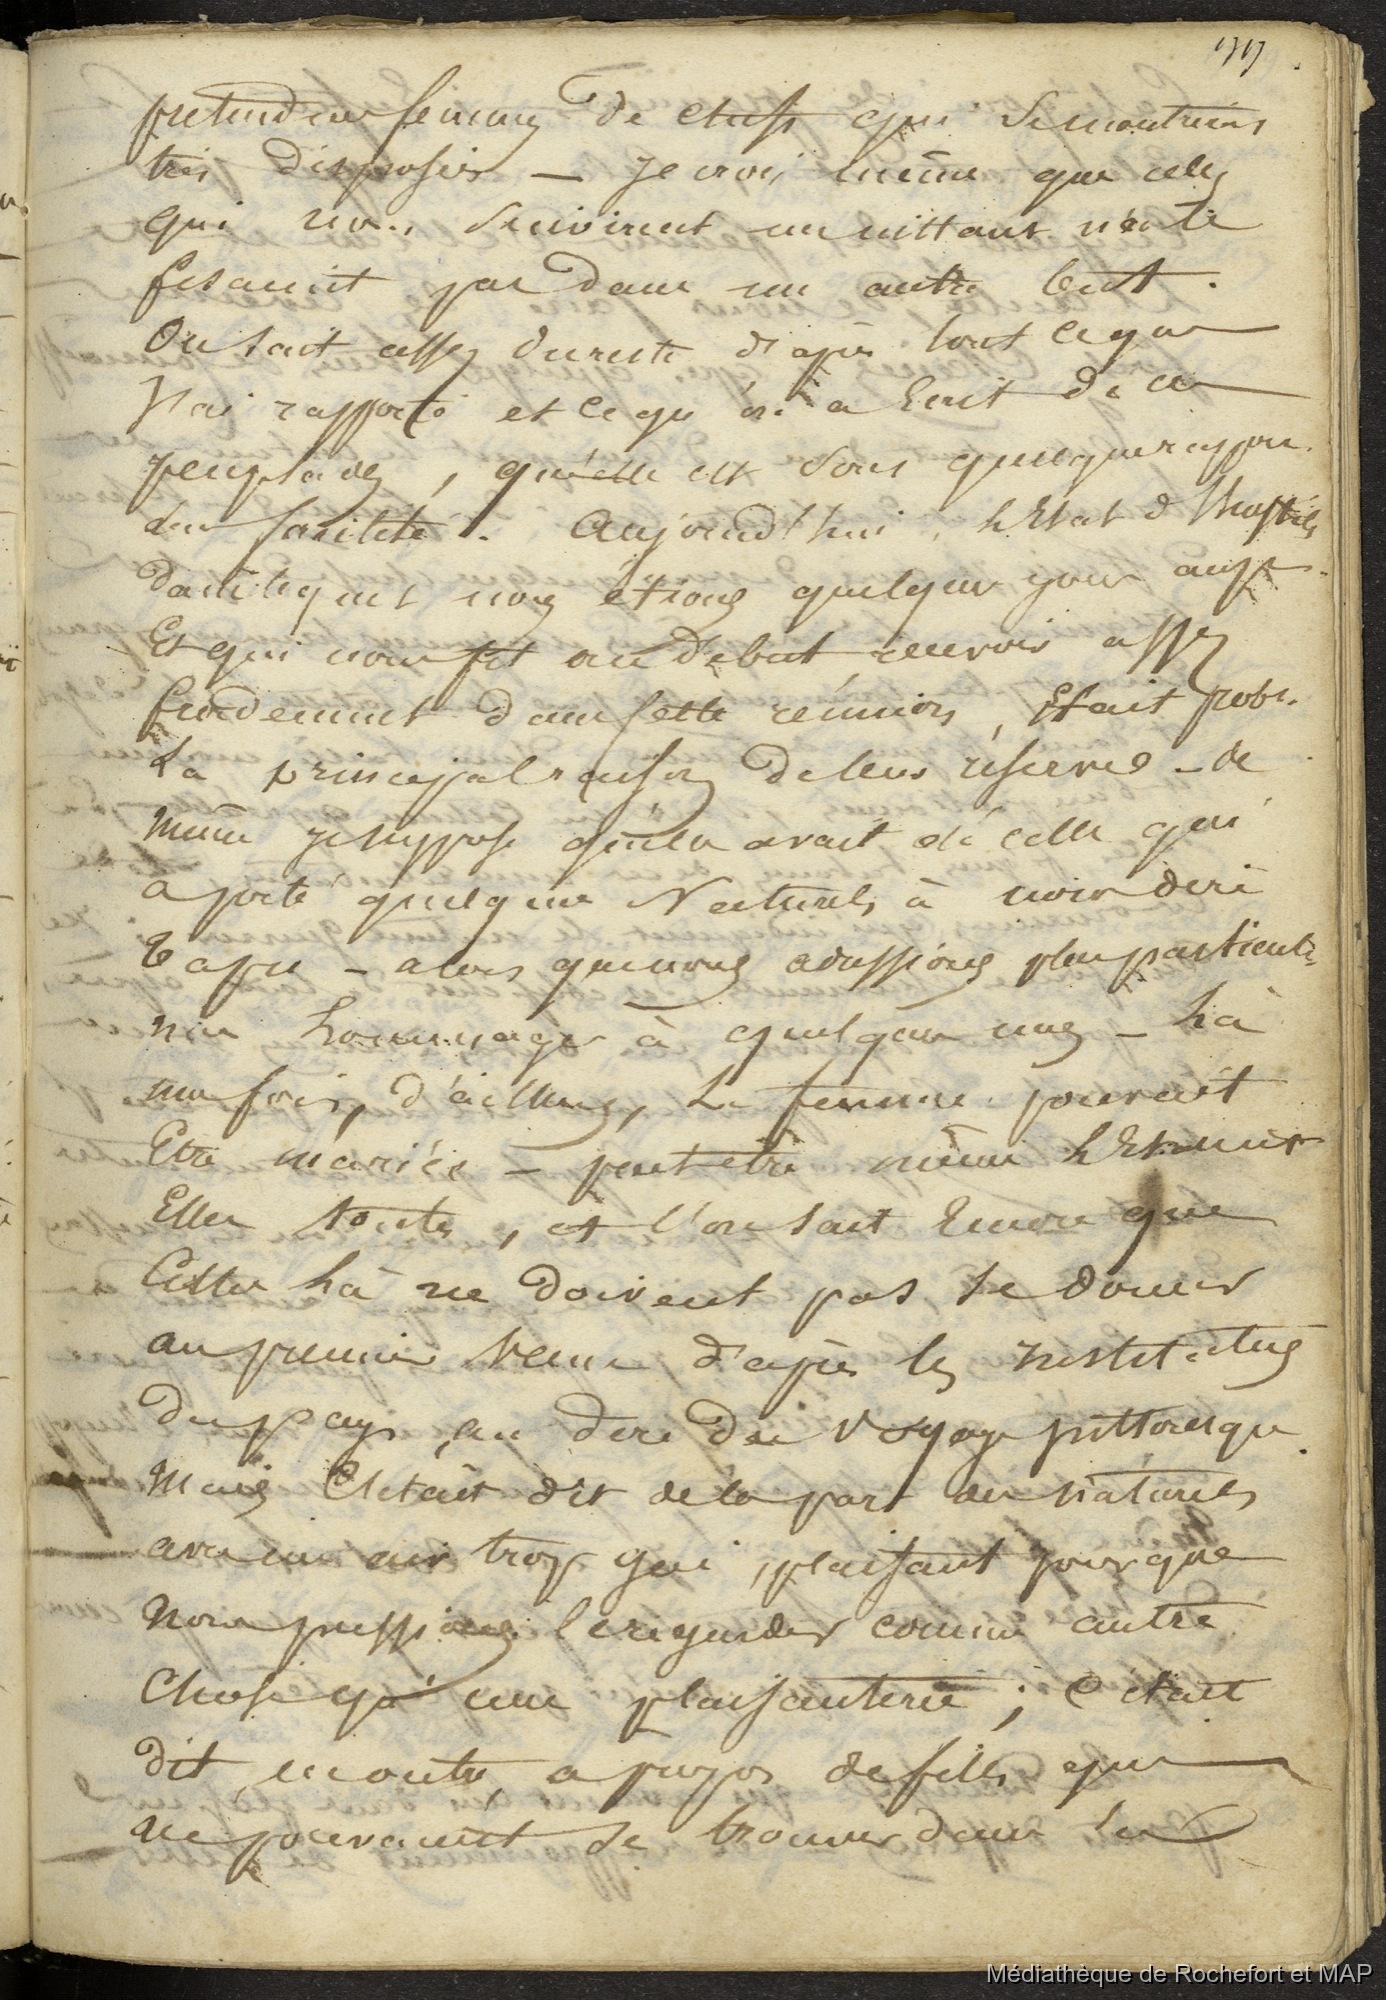 1717
pretendues femmes de chefs qui se montraient
très disposées — je crois même que celles
qui nous suivirent un instant n'en
fesaient pas dans un autre but.
On sait assez du reste d'après tout ce que
j'ai rapporté et ce qu'on a écrit de ces
peuplades, qu'elle est sous quelque rappor.
des facilité. Aujourd'hui, l'Etat d'hostilité
dans lequel nous étions quelques jours aup.
Et qui nous fit au début recevoir assez
froidement dans cette réunion, Etait prob.
La principal raison de leur réserve - de
même je suppose qu'elle avait été celle qui
a porté quelques Naturels à nous dire
tapu - alors que nous adressions plus particuli
nos hommages à quelques unes - Là
ma fois, d'ailleurs, la femme pouvait
Etre mariée - peut être même L'Etaient
Elles toutes, et l'on sait Encore que
Celles Là ne doivent pas se donner
au premier Venu d'après les institutions
du pays, au dire du Voyage pittoresque
Mais C'était dit de la part des naturels
avec un air trop gai, plaisant pour que
Nous pussions le regarder comme autre
Chose qu'une plaisanterie; C'était
dit, en outre, a propos de filles que
ne pouvaient se trouver dans le
Médiathèque de Rochefort et MAP